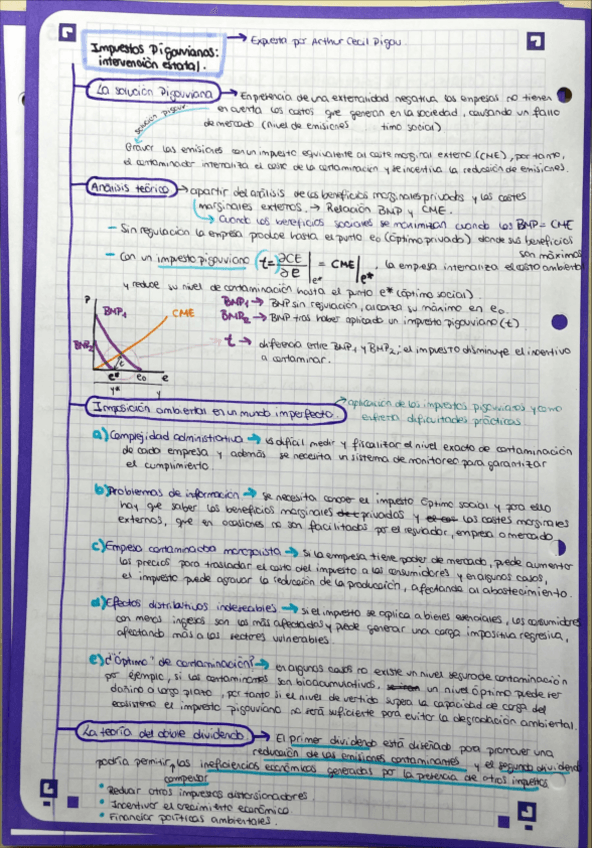 Impuestos Pigouvianos: → Expuesta por Arthur Cecil Pigou.
intervención estatal.
La solución Pigouviana → En presencia de una externalidad negativa, las empresas no tienen
en cuenta los costos que generan en la sociedad, causando un fallo
de mercado (nivel de emisiones timo social)
solución Pigou
Gravar las emisiones con un impuesto equivalente al coste marginal externo (CME), por tanto,
el contaminador internaliza el coste de la contaminación y se incentiva la reducción de emisiones.
Análisis teórico → a partir del análisis de los beneficios marginales privados y los costes
marginales externos. → Relación BMP y CME.
↳ Cuando los beneficios sociales se maximizan cuando los BMP = CME
- Sin regulación la empresa produce hasta el punto e0 (óptimo privado) donde sus beneficios
son máximos
- Con un impuesto pigouviano (t = ∂CE/∂e |e* = CME|e*, la empresa internaliza el costo ambiental
y reduce su nivel de contaminación hasta el punto e* (óptimo social).
P BMP1 → BMP sin regulación, alcanza su máximo en e0.
BMP1 CME BMP2 → BMP tras haber aplicado un impuesto pigouviano (t)
BMP2 t → diferencia entre BMP1 y BMP2; el impuesto disminuye el incentivo
t a contaminar.
e* e0 e
y* y
Imposición ambiental en un mundo imperfecto → aplicación de los impuestos pigouvianos y como
enfrenta dificultades prácticas.
a) Complejidad administrativa → es difícil medir y fiscalizar el nivel exacto de contaminación
de cada empresa y además se necesita un sistema de monitoreo para garantizar
el cumplimiento.
b) Problemas de información → se necesita conocer el impuesto óptimo social y para ello
hay que saber los beneficios marginales privados y los costes marginales
externos, que en ocasiones no son facilitados por el regulador, empresa o mercado
c) Empresa contaminadora monopolista → Si la empresa tiene poder de mercado, puede aumentar
los precios para trasladar el costo del impuesto a los consumidores y en algunos casos,
el impuesto puede agravar la reducción de la producción, afectando al abastecimiento.
d) Efectos distributivos indeseables → si el impuesto se aplica a bienes esenciales, los consumidores
con menos ingresos son los más afectados y puede generar una carga impositiva regresiva,
afectando más a los sectores vulnerables.
e) ¿"Óptimo" de contaminación? → en algunos casos no existe un nivel seguro de contaminación
por ejemplo, si los contaminantes son bioacumulativos, un nivel óptimo puede ser
dañino a largo plazo, por tanto si el nivel de vertido supera la capacidad de carga del
ecosistema el impuesto pigouviano no será suficiente para evitar la degradación ambiental.
La teoría del doble dividendo → El primer dividendo está diseñado para promover una
reducción de las emisiones contaminantes y el segundo dividendo
podría permitir las ineficiencias económicas generadas por la presencia de otros impuestos
compensar
• Reducir otros impuestos distorsionadores
• Incentivar el crecimiento económico.
• Financiar políticas ambientales.